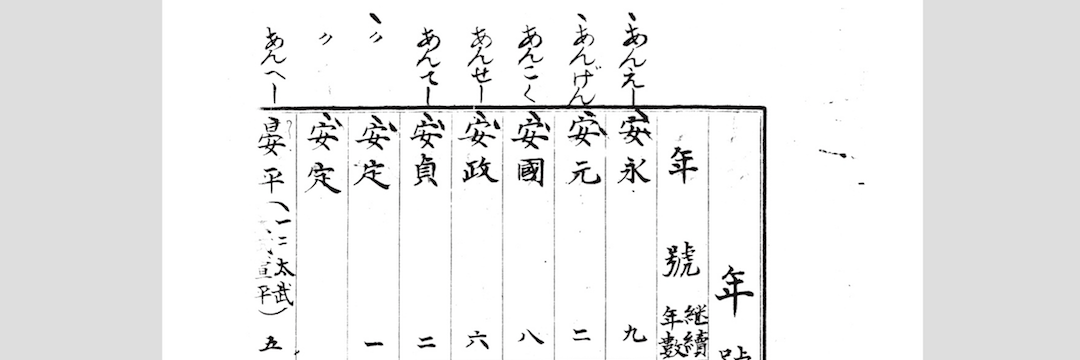 年
年號 継續年數
あんえー 安永 九
あんげん 安元 二
あんこく 安國 八
あんせー 安政 六
あんてー 安貞 二
〃 安定 一
〃 安定
あんへー 晏平 (一ニ太武 平) 五